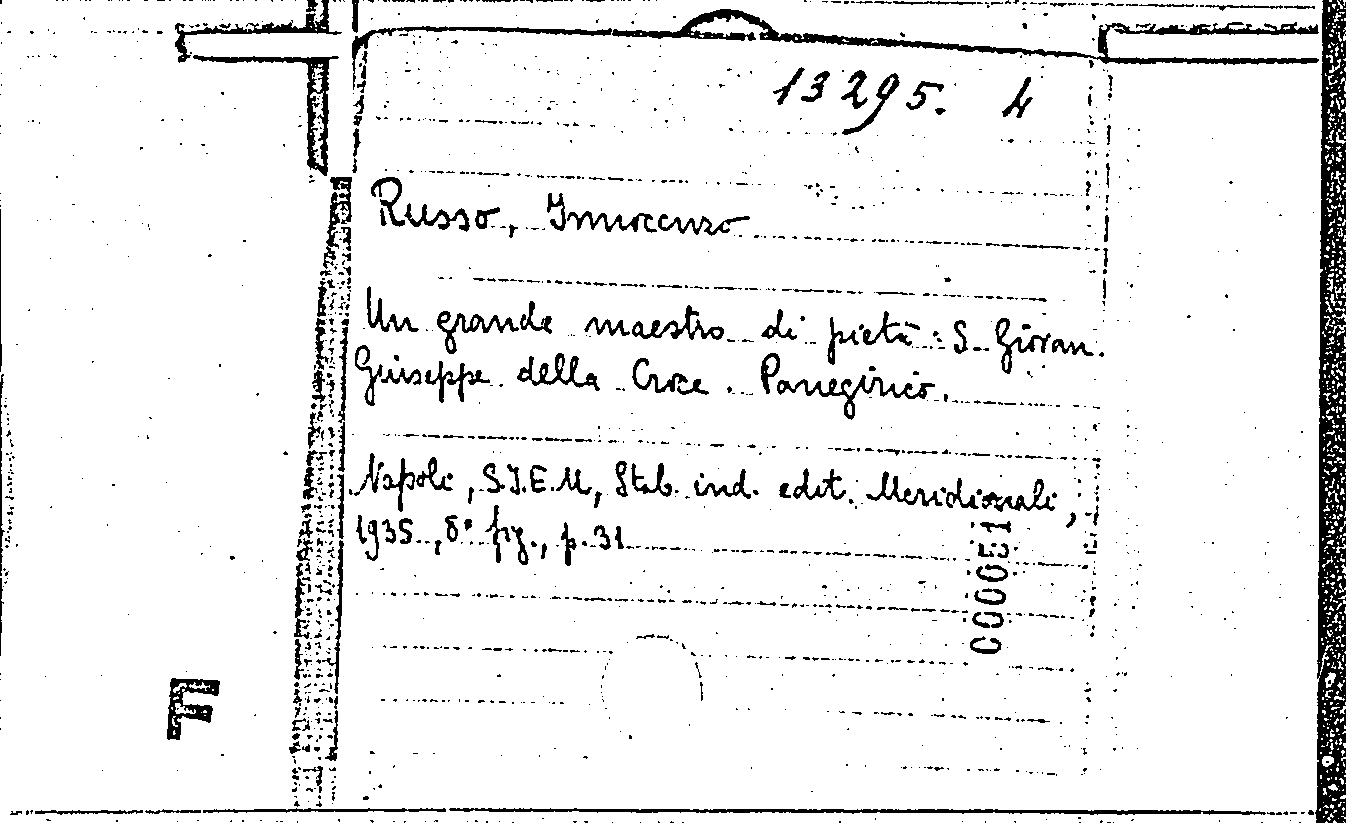 13295. 4
Russo, Innocenzo
Un grande maestro di pietà: S. Giovan.
Giuseppe della Croce. Panegirico.
Napoli, S.I.E.M, Stab. ind. edit. Meridionali,
1935, 8° fig., p. 31
C000051
F